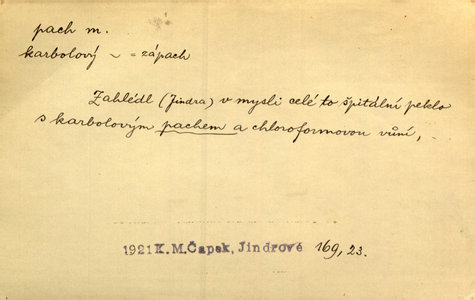 pach m.
karbolový ~ = zápach
Zahlédl (Jindra) v mysli celé to špitální peklo
s karbolovým pachem a chloroformovou vůní, –
1921 K. M. Čapek, Jindrové 169, 23.